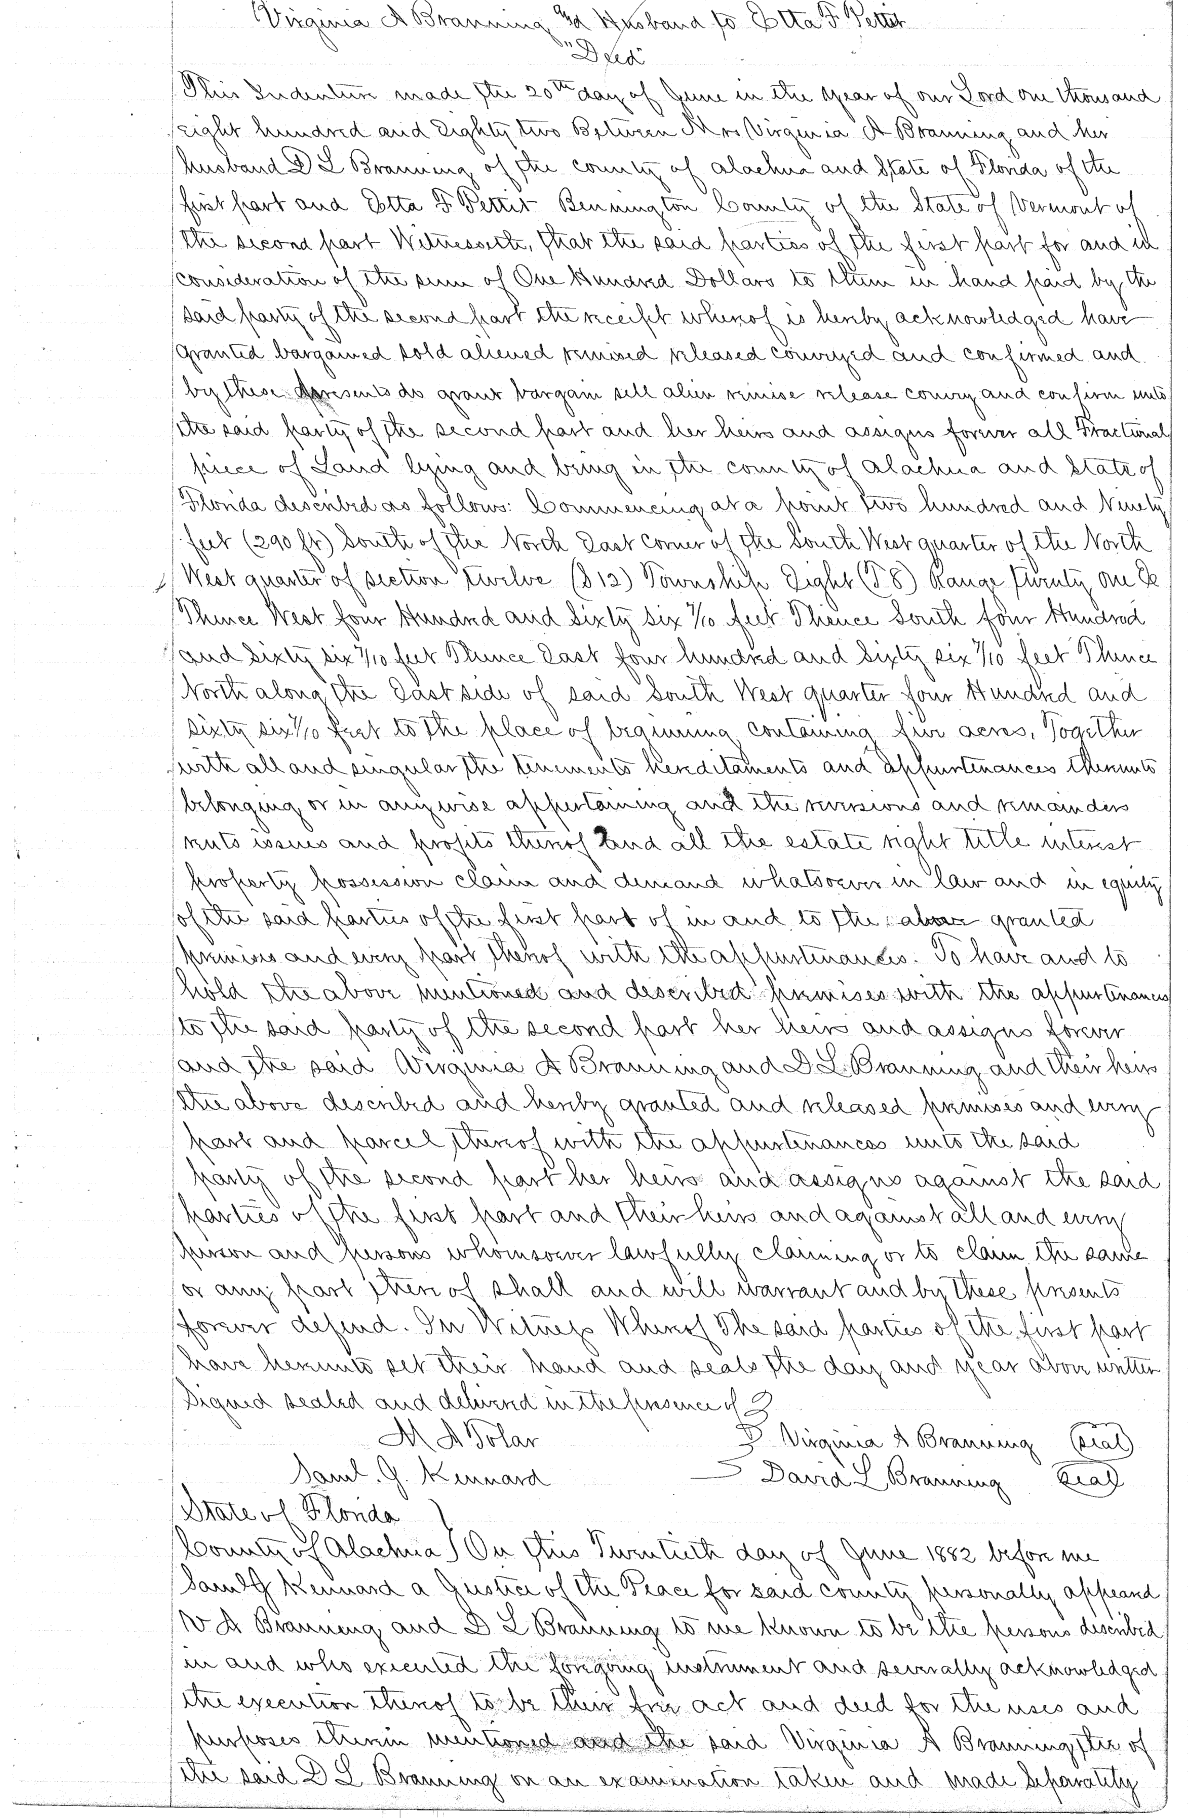 Virginia A Branning and Husband to Etta F Pettit
"Deed"
This Indenture made the 20th day of June in the year of our Lord one thousand
eight hundred and Eighty two Between Mrs Virginia A Branning and her
husband D L Branning of the county of Alachua and State of Florida of the
first part and Etta F Pettit Bennington County of the State of Vermont of
the second part Witnesseth, that the said parties of the first part for and in
consideration of the sum of One Hundred Dollars to them in hand paid by the
said party of the second part the receipt whereof is hereby acknowledged have
granted bargained sold aliened remised released conveyed and confirmed and
by these presents do grant bargain sell alien remise release convey and confirm unto
the said party of the second part and her heirs and assigns forever all Fractional
piece of Land lying and being in the county of Alachua and State of
Florida described as follows: Commencing at a point two hundred and Ninety
feet (290 ft) South of the North East corner of the South West quarter of the North
West quarter of section twelve (S 12) Township Eight (T 8) Range twenty one E
Thence West four Hundred and Sixty six 7/10 feet Thence South four Hundred
and Sixty six 7/10 feet Thence East four hundred and Sixty six 7/10 feet Thence
North along the East side of said South West quarter four Hundred and
sixty six 7/10 feet to the place of beginning containing five acres, Together
with all and singular the tenements hereditaments and appurtenances thereunto
belonging or in anywise appertaining and the reversions and remainders
rents issues and profits thereof and all the estate right title interest
property possession claim and demand whatsoever in law and in equity
of the said parties of the first part of in and to the above granted
premises and every part thereof with the appurtenances. To have and to
hold the above mentioned and described premises with the appurtenances
to the said party of the second part her heirs and assigns forever
and the said Virginia A Branning and D L Branning and their heirs
the above described and hereby granted and released premises and every
part and parcel thereof with the appurtenances unto the said
party of the second part her heirs and assigns against the said
parties of the first part and their heirs and against all and every
person and persons whomsoever lawfully claiming or to claim the same
or any part there of shall and will warrant and by these presents
forever defend. In Witness Whereof The said parties of the first part
have hereunto set their hand and seals the day and year above written
Signed sealed and delivered in the presence of
M A Tolar Virginia A Branning (seal)
Saml. G. Kennard David L Branning (seal)
State of Florida
County of Alachua } On this Twentieth day of June 1882 before me
Saml G Kennard a Justice of the Peace for said county personally appeard
V A Branning and D L Branning to me known to be the persons described
in and who executed the foregoing instrument and severally acknowledged
the execution thereof to be their free act and deed for the uses and
purposes therein mentioned and the said Virginia A Branning the of
the said D L Branning on an examination taken and made Separately